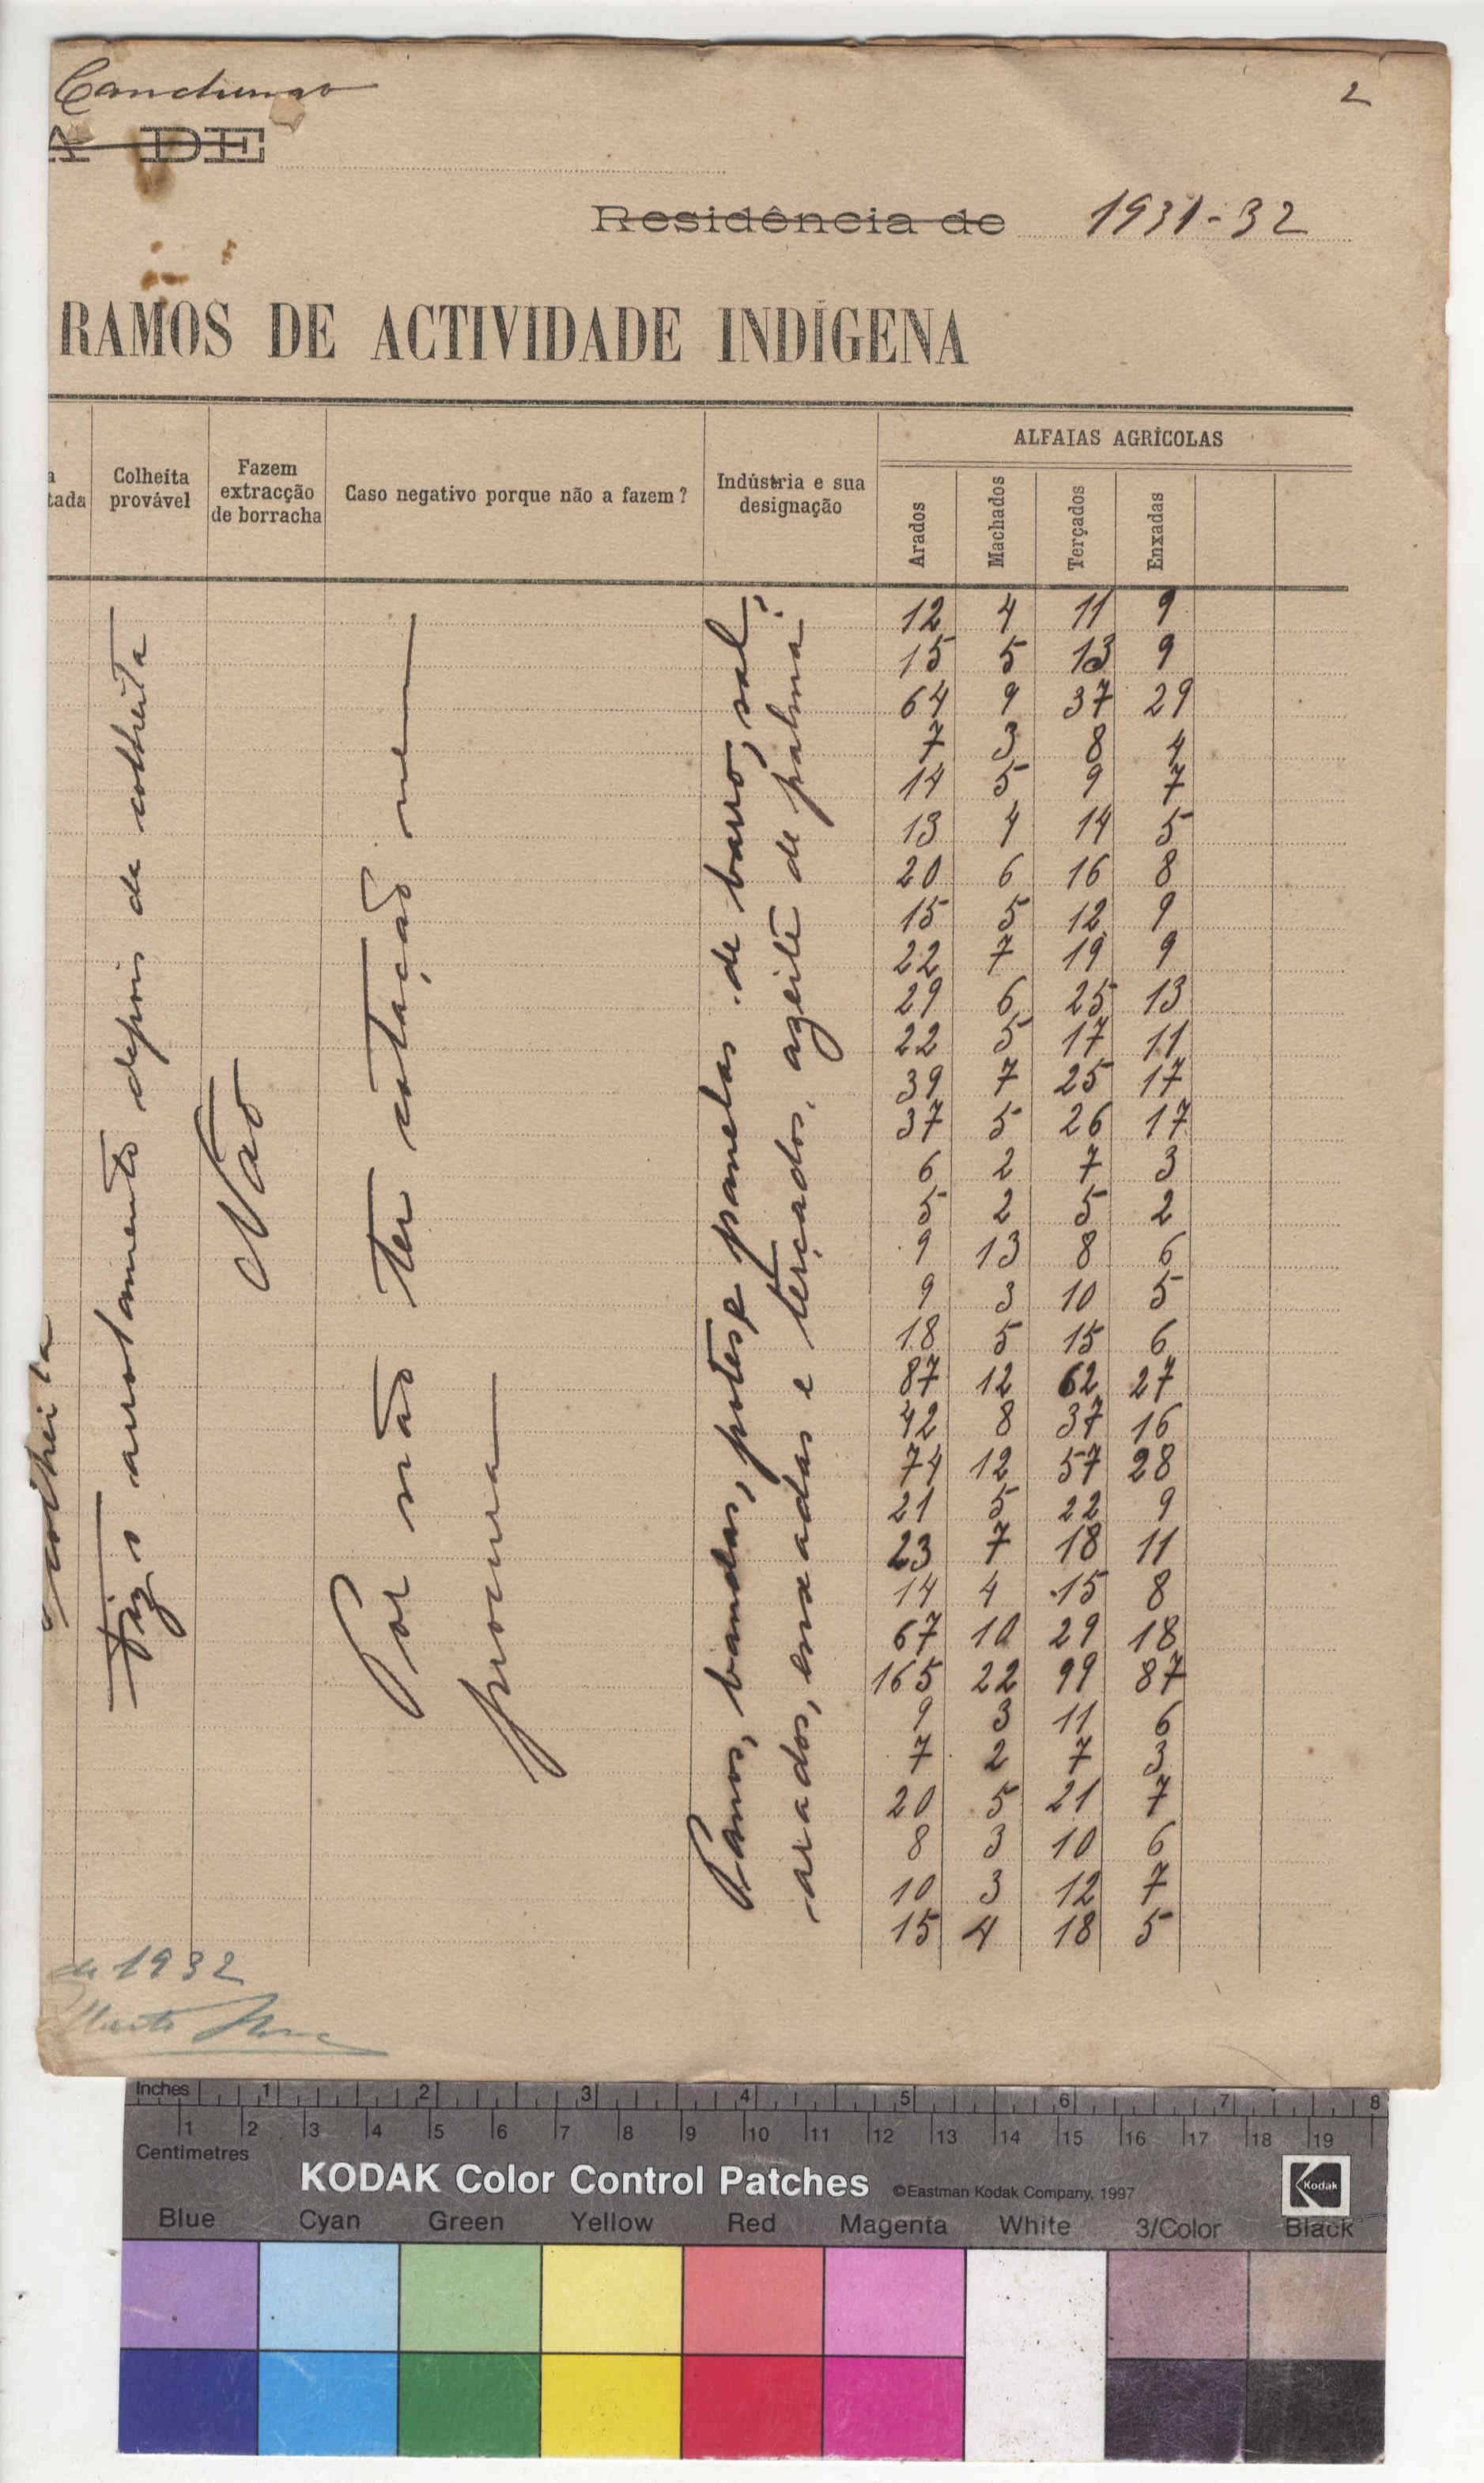 Canchungo
2
R DE
Residência de 1931-32
RAMOS DE ACTIVIDADE INDÍGENA
a
tada
Colheita
provável
Fazem
extracção
de borracha
Caso negativo porque não a fazem?
Indústria e sua
designação
ALFAIAS AGRÍCOLAS
Arados
Machados
Terçados
Enxadas
colheita
Fiz o arrolamento depois de colheita
Não
Por não ter cotação nem
procura
Panos, bandas, potes e panelas de barro, sal,
arados, enxadas e terçados, azeite de palma.
12 4 11 9
15 5 13 9
64 9 37 29
7 3 8 4
14 5 9 7
13 4 14 5
20 6 16 8
15 5 12 9
22 7 19 9
29 6 25 13
22 5 17 11
39 7 25 17
37 5 26 17
6 2 7 3
5 2 5 2
9 13 8 6
9 3 10 5
18 5 15 6
87 12 62 27
42 8 37 16
74 12 57 28
21 5 22 9
23 7 18 11
14 4 15 8
67 10 29 18
165 22 99 87
9 3 11 6
7 2 7 3
20 5 21 7
8 3 10 6
10 3 12 7
15 4 18 5
de 1932
Inches 1 2 3 4 5 6 7 8
1 2 3 4 5 6 7 8 9 10 11 12 13 14 15 16 17 18 19
Centimetres
KODAK Color Control Patches ©Eastman Kodak Company, 1997 Kodak
Blue Cyan Green Yellow Red Magenta White 3/Color Black